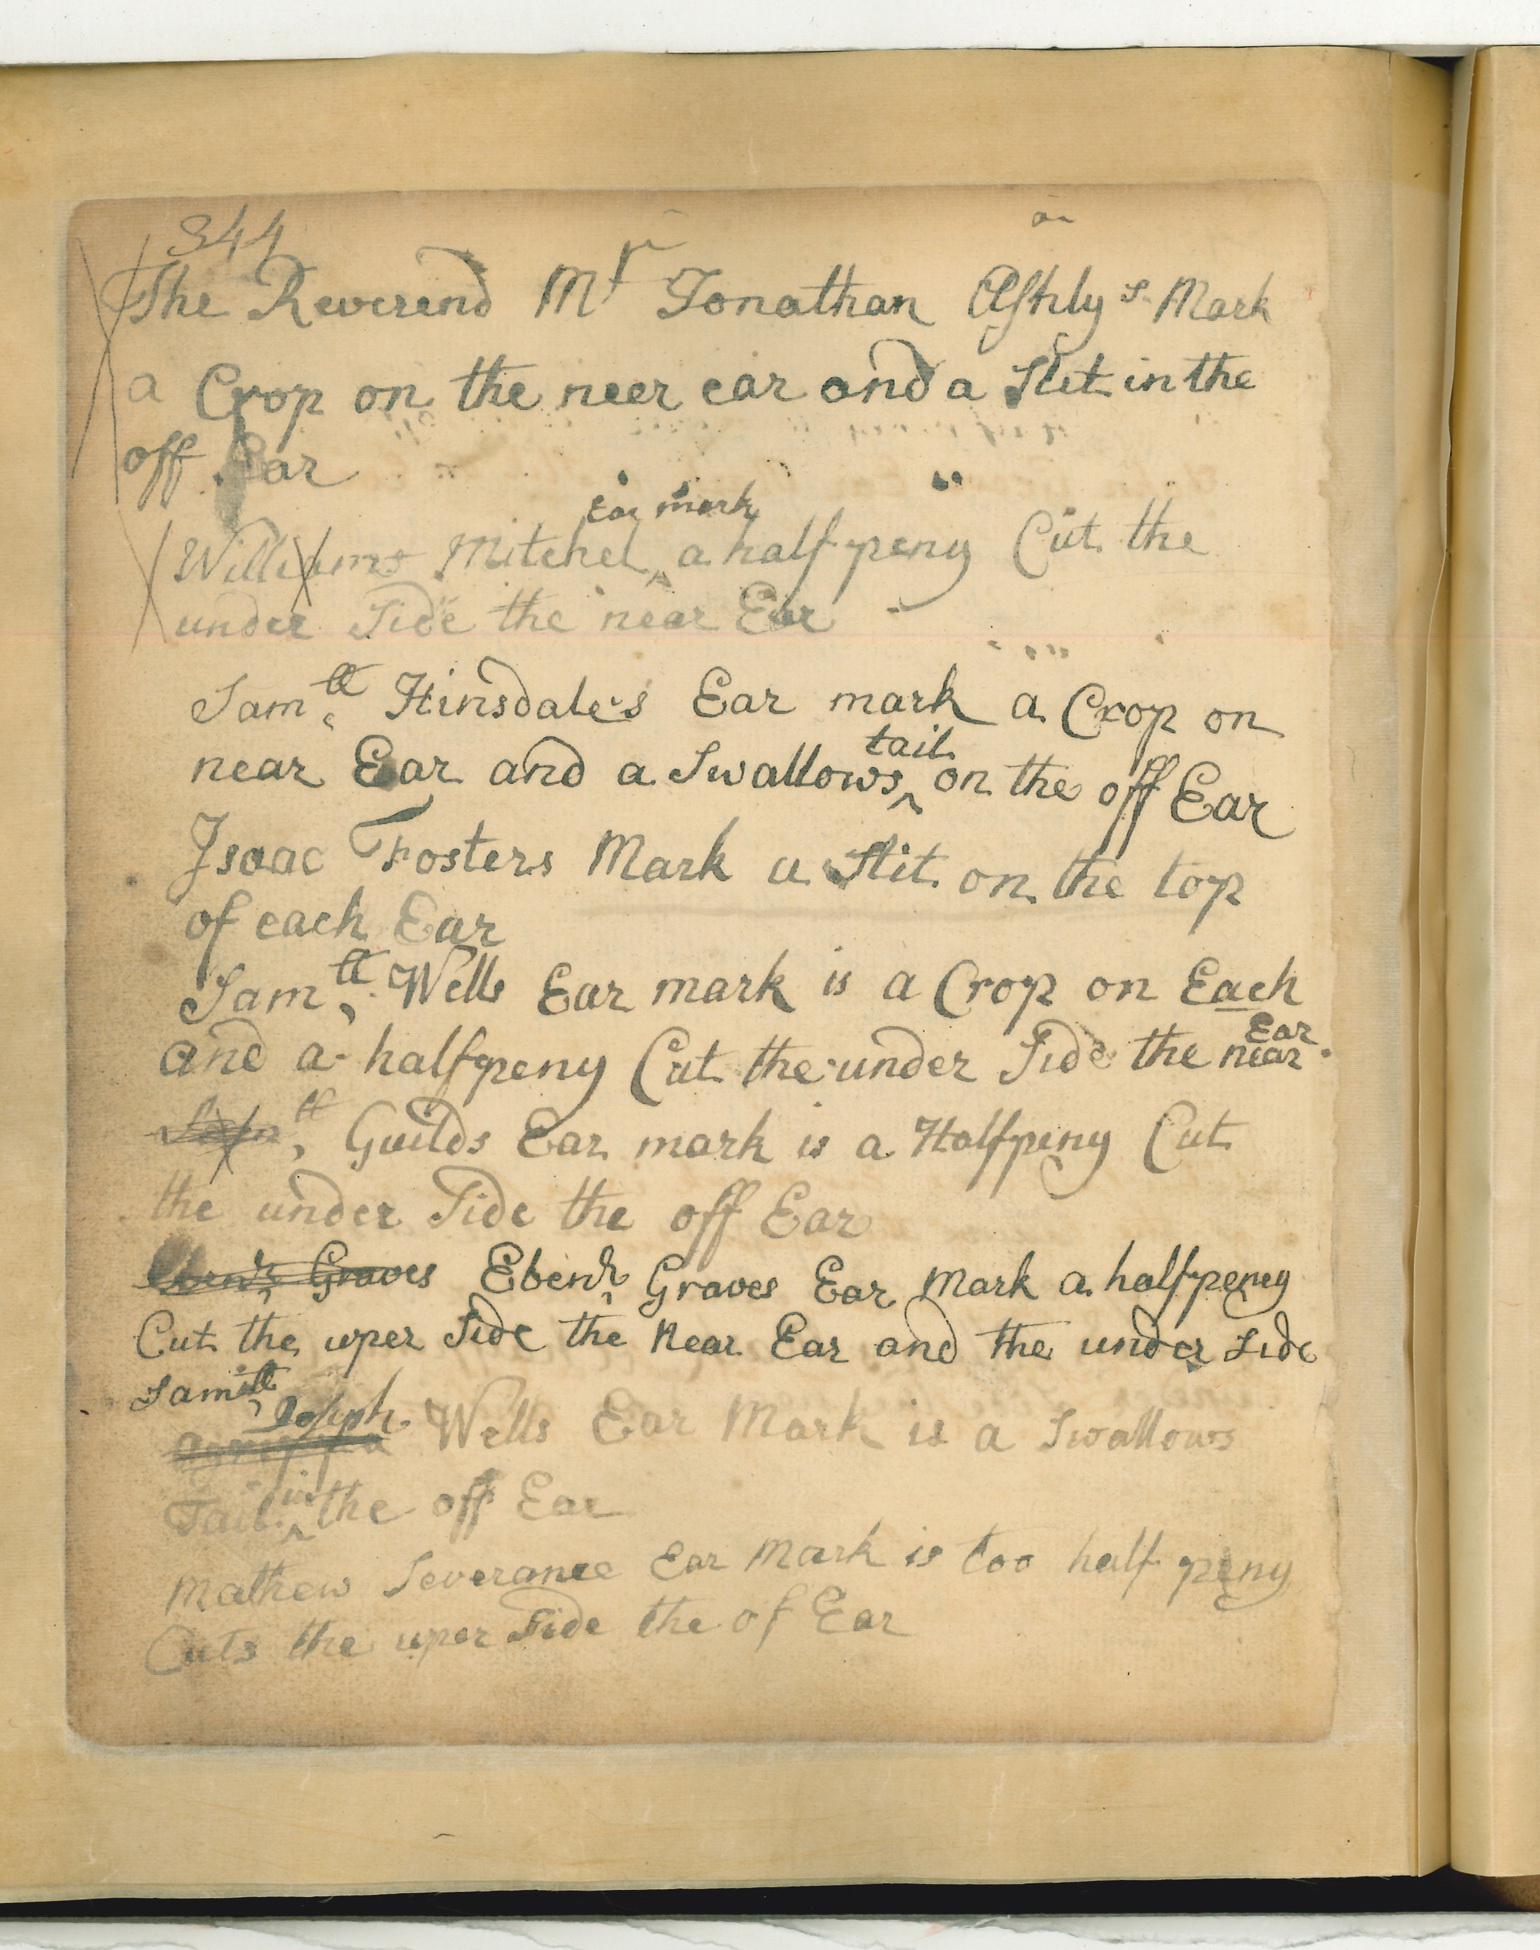 344
The Reverend Mr Jonathan Ashly's Mark
a Crop on the neer ear and a Slit in the
off Ear
Ear mark
Williams Mitchel ^ a halfpeny Cut the
under Side the near Ear
Samll Hinsdale's Ear mark a Crop on
near Ear and a Swallows ^ tail on the off Ear
Isaac Fosters Mark a Slit on the top
of each Ear
Samll Wells Ear mark is a Crop on Each
Ear
and a halfpeny Cut the under Side the near
Samll Guilds Ear mark is a Halfpeny Cut
the under Side the off Ear
Ebenr Graves Ebenr Graves Ear Mark a halfpeney
Cut the uper Side the Near Ear and the under Side
Samll
Joseph Wells Ear Mark is a Swallows
Tail ^ in the off Ear
Mathew Severance Ear Mark is too half peny
Cuts the uper Side the of Ear